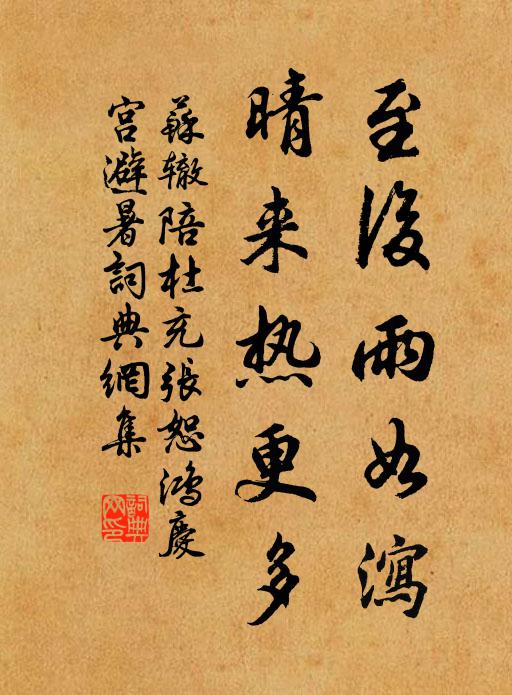 至後雨如瀉
晴来热更多
蘇辙陪杜充張恕鴻慶
宫避暑詞典網集
詞典
网印